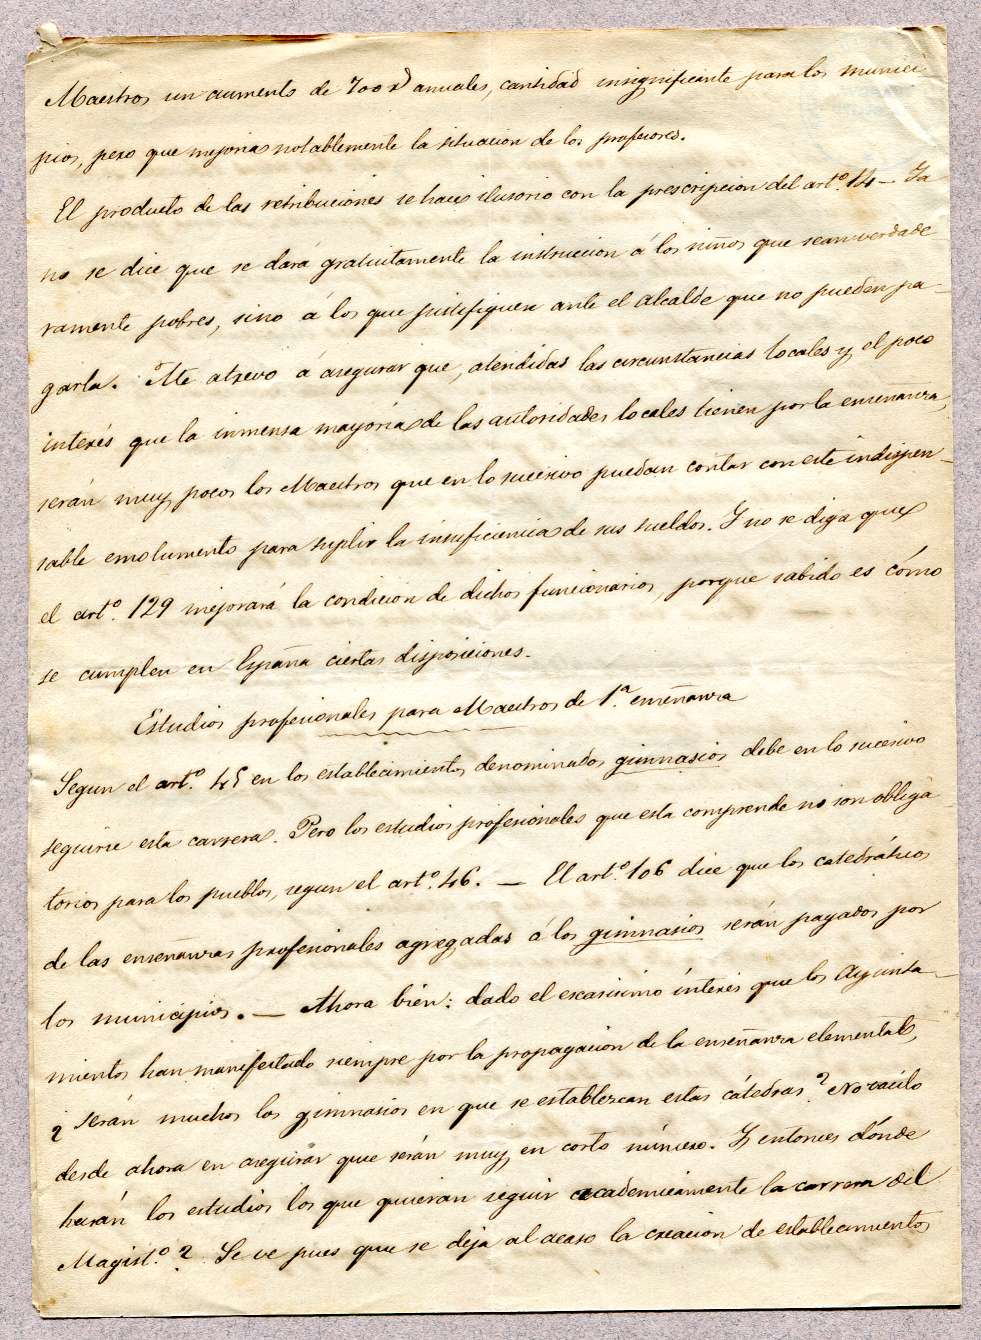 Maestros un aumento de 700 rˢ anuales, cantidad insignificante para los munici-
pios, pero que mejoria notablemente la situacion de los profesores.
El producto de las retribuciones se hace ilusorio con la prescripcion del artº. 14 — Ya
no se dice que se dará gratuitamente la instruccion á los niños que sean verdade
ramente pobres, sino á los que justifiquen ante el alcalde que no pueden pa-
garla. Me atrevo á asegurar que, atendidas las circunstancias locales y el poco
interés que la inmensa mayoria de las autoridades locales tienen por la enseñanza,
serán muy pocos los Maestros que en lo sucesivo puedan contar con este indispen-
sable emolumento para suplir la insuficiencia de sus sueldos. Y no se diga que
el artº. 129 mejorará la condicion de dichos funcionarios, porque sabido es cómo
se cumplen en España ciertas disposiciones.
Estudios profesionales para Maestros de 1ª. enseñanza
Segun el artº. 45 en los establecimientos denominados gimnasios debe en lo sucesivo
seguirse esta carrera. Pero los estudios profesionales que esta comprende no son obliga
torios para los pueblos, segun el artº. 46. — El artº. 106 dice que los catedráticos
de las enseñanzas profesionales agregadas á los gimnasios serán pagados por
los municipios. — Ahora bién: dado el escasisimo interés que los Ayunta-
mientos han manifestado siempre por la propagacion de la enseñanza elemental,
¿ serán muchos los gimnasios en que se establezcan estas cátedras? No vacilo
desde ahora en asegurar que serán muy en corto número. Y entonces dónde
harán los estudios los que quieran seguir academicamente la carrera del
Magistº.? Se ve pues que se deja al acaso la creacion de establecimientos